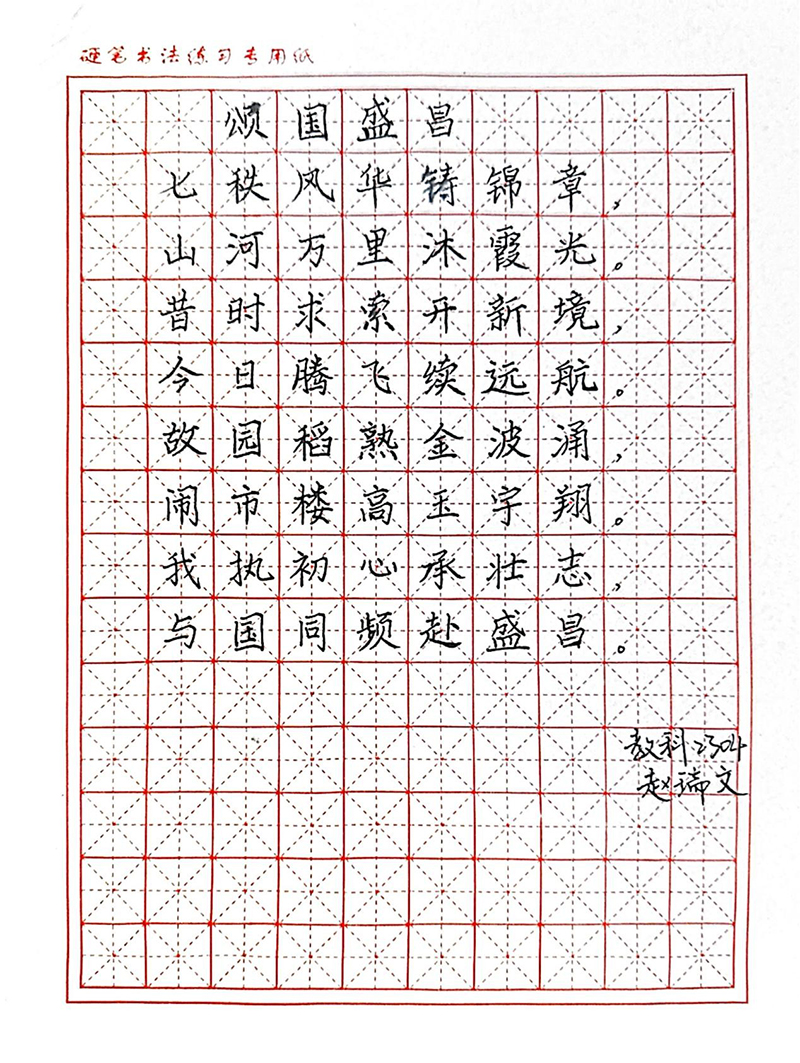 硬笔书法练习专用纸
颂国盛昌
七秩风华铸锦章，
山河万里沐霞光。
昔时求索开新境，
今日腾飞续远航。
故园稻熟金波涌，
闹市楼高玉宇翔。
我执初心承壮志，
与国同频赴盛昌。
教科2304
赵瑞文